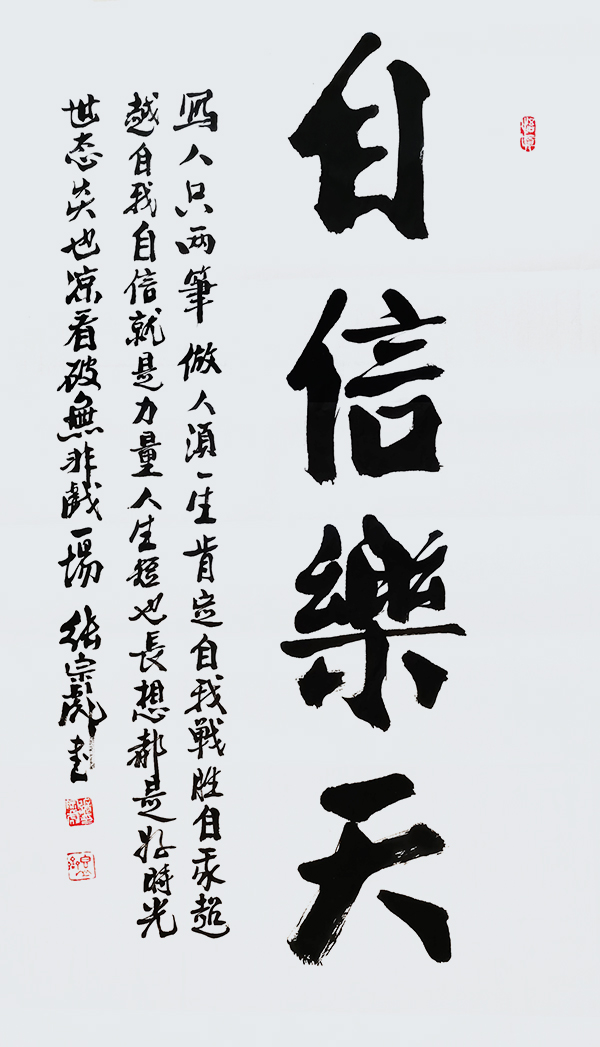 自信樂天
寫人只两筆做人湏一生肯定自我戰胜自我超
越自我自信就是力量人生短也長想都是好時光
世态炎也凉看破無非戲一場 张宗彪書